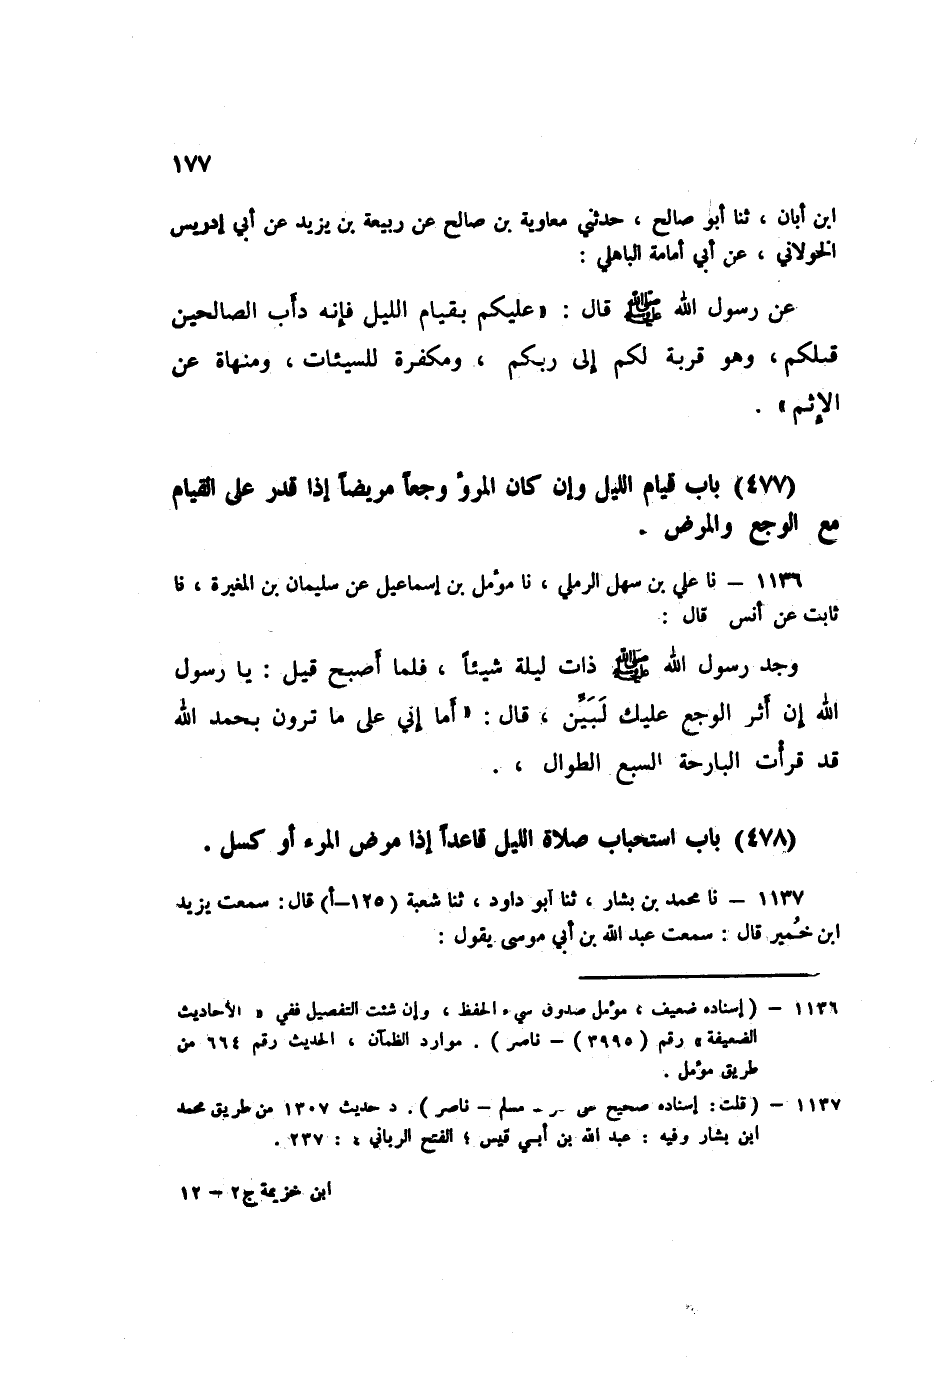 ١٧٧
ابن أبان ، ثنا أبو صالح ، حدثني معاوية بن صالح عن ربيعة بن يزيد عن أبي إدريس
الخولاني ، عن أبي أمامة الباهلي :
عن رسول الله ﷺ قال : « عليكم بقيام الليل فإنه دأب الصالحين
قبلكم ، وهو قربة لكم إلى ربكم ، ومكفرة للسيئات ، ومنهاة عن
الإثم » .
(٤٧٧) باب قيام الليل وإن كان المرؤ وجعاً مريضاً إذا قدر على القيام
مع الوجع والمرض .
١١٣٦ – نا علي بن سهل الرملي ، نا مؤمل بن إسماعيل عن سليمان بن المغيرة ، نا
ثابت عن أنس قال :
وجد رسول الله ﷺ ذات ليلة شيئاً ، فلما أصبح قيل : يا رسول
الله إن أثر الوجع عليك لَبَيِّن ، قال : « أما إني على ما ترون بحمد الله
قد قرأت البارحة السبع الطوال ، .
(٤٧٨) باب استحباب صلاة الليل قاعداً إذا مرض المرء أو كسل .
١١٣٧ – نا محمد بن بشار ، ثنا أبو داود ، ثنا شعبة (١٢٥–أ) قال : سمعت يزيد
ابن خُمير قال : سمعت عبد الله بن أبي موسى يقول :
١١٣٦ – ( إسناده ضعيف ، مؤمل صدوق سيء الحفظ ، وإن شئت التفصيل ففي « الأحاديث
الضعيفة » رقم ( ٣٩٩٥ ) – ناصر ) . موارد الظمآن ، الحديث رقم ٦٦٤ من
طريق مؤمل .
١١٣٧ – ( قلت : إسناده صحيح مسلم – ناصر ) . د حديث ١٣٠٧ من طريق محمد
ابن بشار وفيه : عبد الله بن أبي قيس ؛ الفتح الرباني ٤ : ٢٣٧ .
ابن خزيمة ج٢ – ١٢